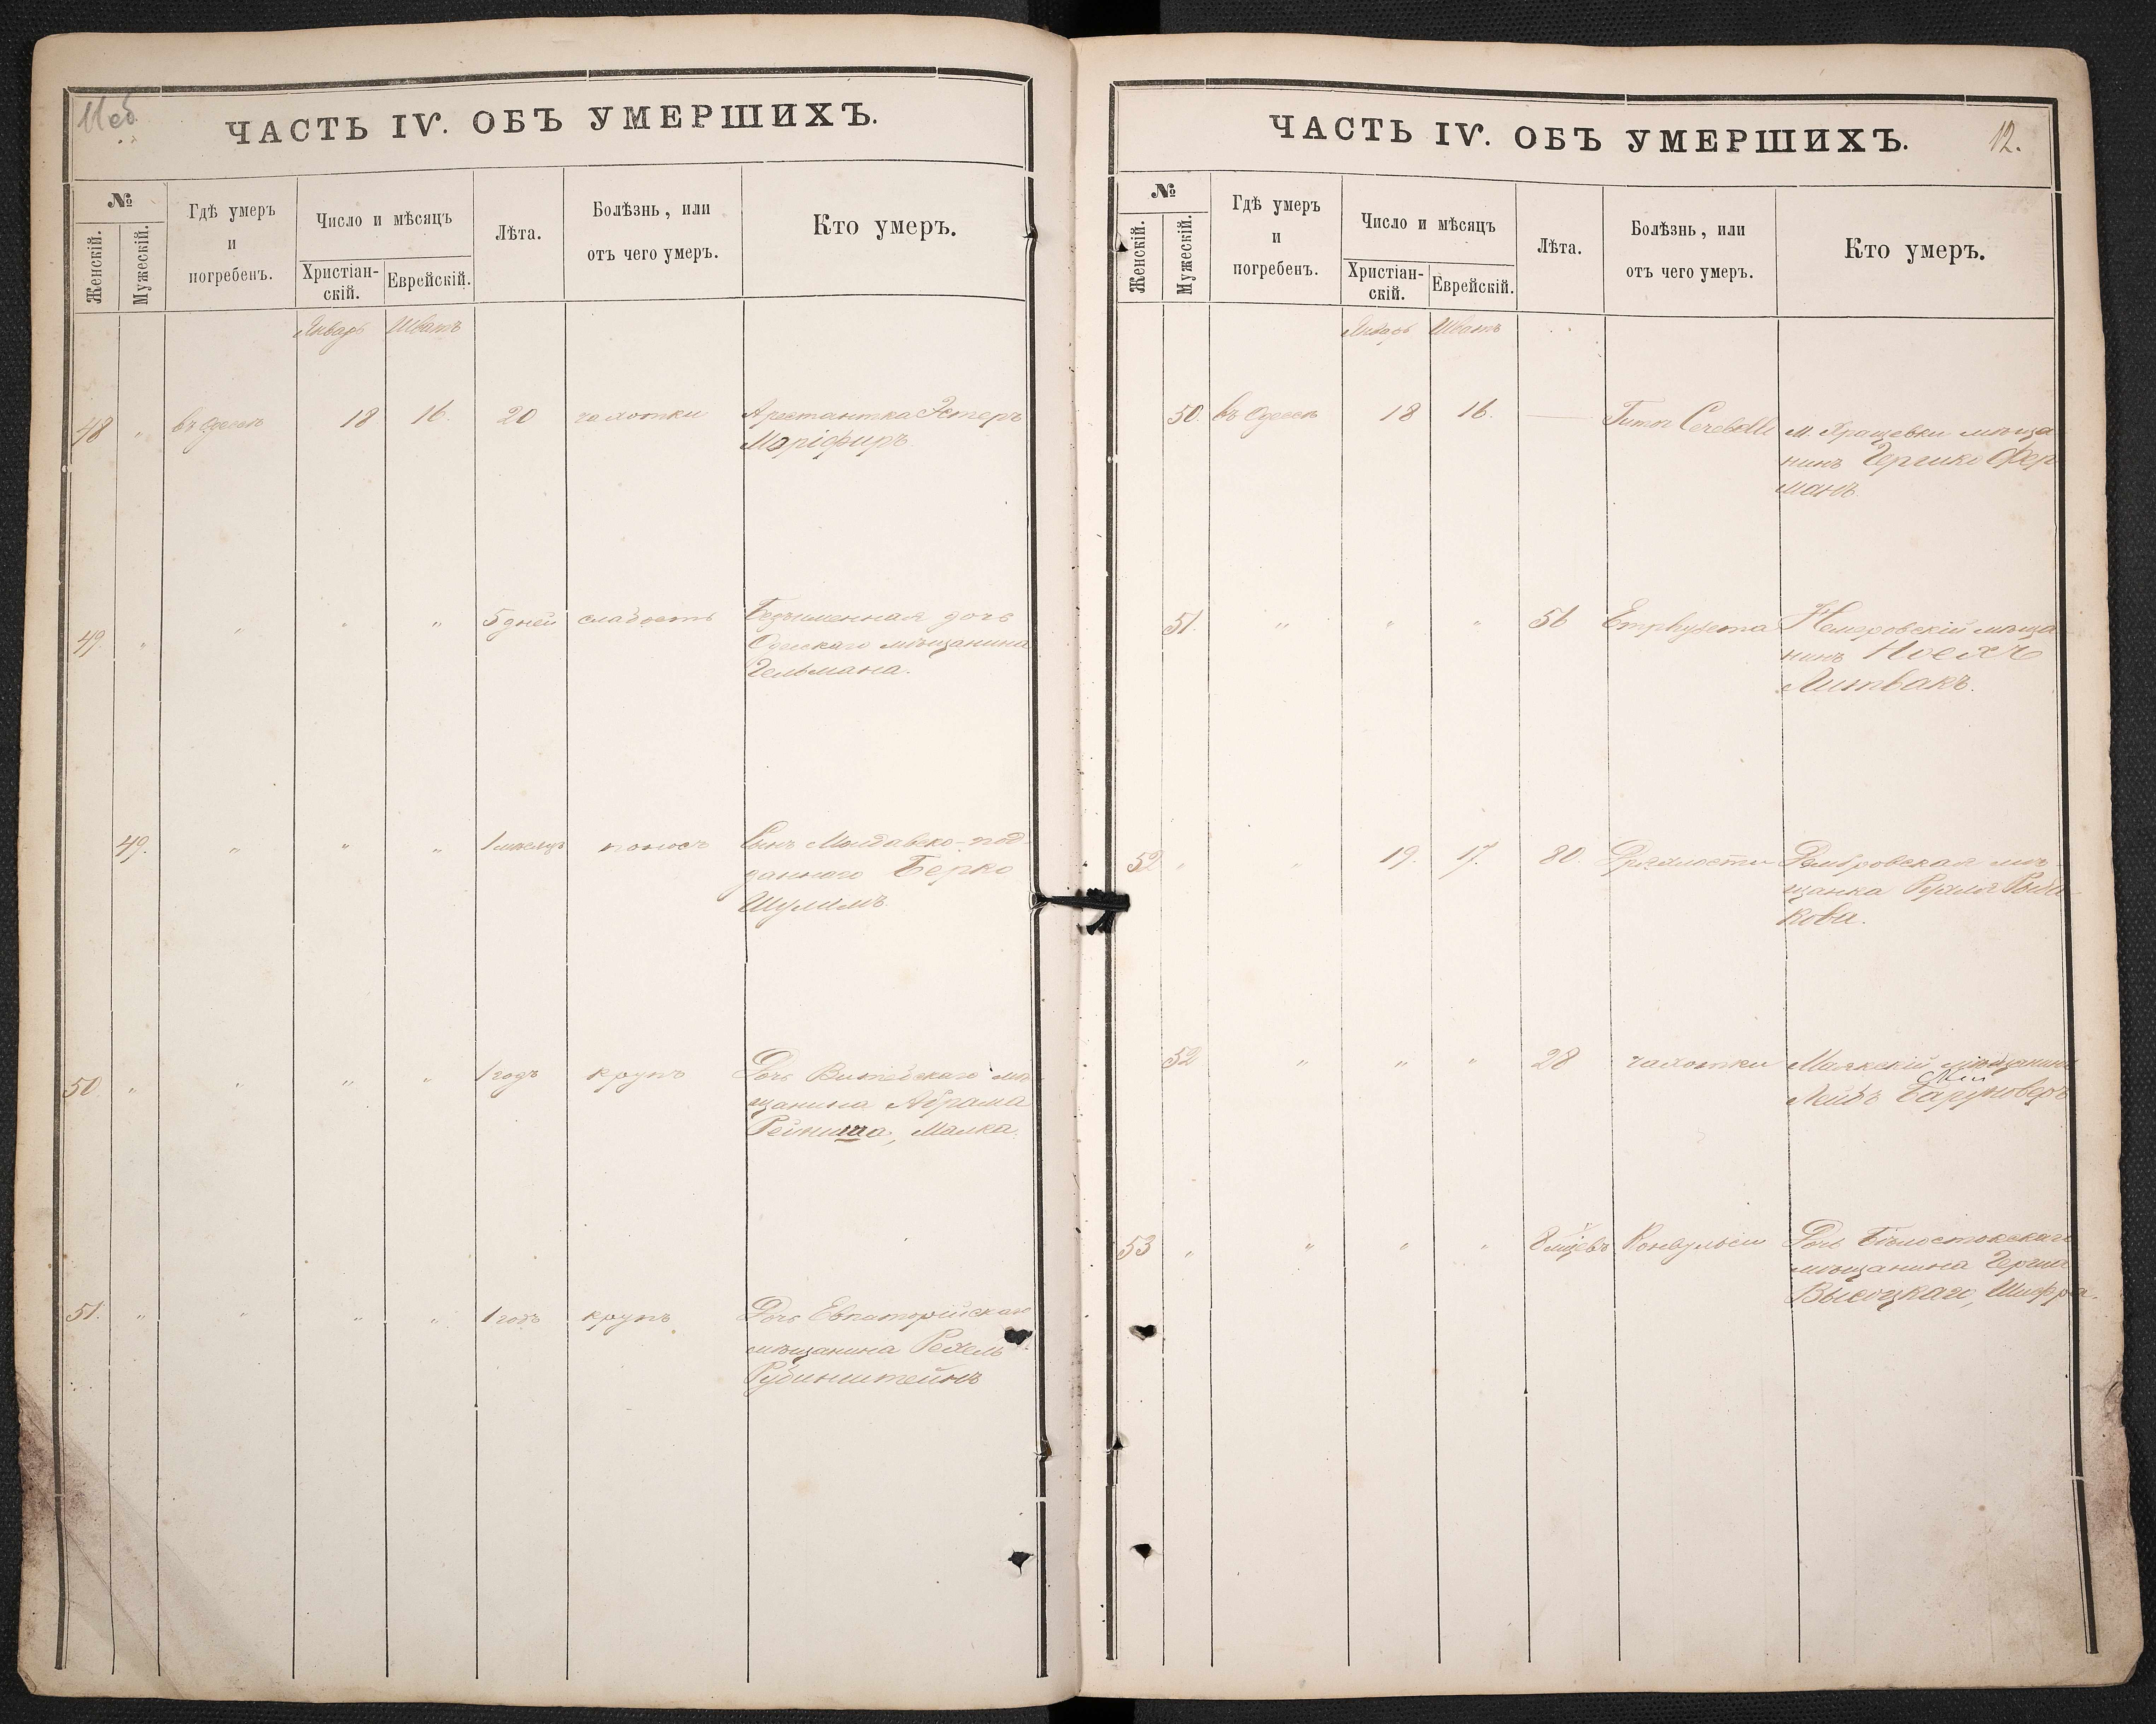 11об
ЧАСТЬ IV. ОБЪ УМЕРШИХЪ.
№
Женскій.
Мужескій.
Гдѣ умеръ
и
погребенъ.
Число и мѣсяцъ
Христіан-
скій.
Еврейскій.
Лѣта.
Болѣзнь, или
отъ чего умеръ.
Кто умеръ.
Январь Шватъ
48 „ въ Одессѣ 18 16. 20 чахотки Арестантка Эстеръ
49 „ „ „ „ 5 дней слабость Безъименная дочь
Одесскаго мѣщанина
Гельмана.
49. „ „ „ 1 мѣсяцъ поносъ Сынъ Молдавско-под
даннаго Берко
Шулимъ.
50 „ „ „ „ 1 годъ крупъ Дочь мѣ
щанина Абрама
Рейниша, Малка.
51. „ „ „ „ 1 годъ крупъ Дочь Евпаторійскаго
мѣщанина Рехель
Рубинштейнъ
ЧАСТЬ IV. ОБЪ УМЕРШИХЪ.
12.
№
Женскій.
Мужескій.
Гдѣ умеръ
и
погребенъ.
Число и мѣсяцъ
Христіан-
скій.
Еврейскій.
Лѣта.
Болѣзнь, или
отъ чего умеръ.
Кто умеръ.
Январь Шватъ
50. въ Одессѣ 18 16. — Tumor Cerebelli м. мѣща
нинъ Фер
манъ.
51. „ „ „ 56 Emphysema Немеровскій мѣща
нинъ
Литвакъ.
52 „ „ 19. 17. 80. Дряхлости мѣ
щанка Рухля Рыба
кова.
52 „ „ „ 28 чахотки Маякскій мѣщанинъ
Лейбъ
53 „ „ „ „ 8 мцевъ Конвульсіи Дочь Бѣлостокскаго
мѣщанина Герша
Высоцкаго, Шифра.